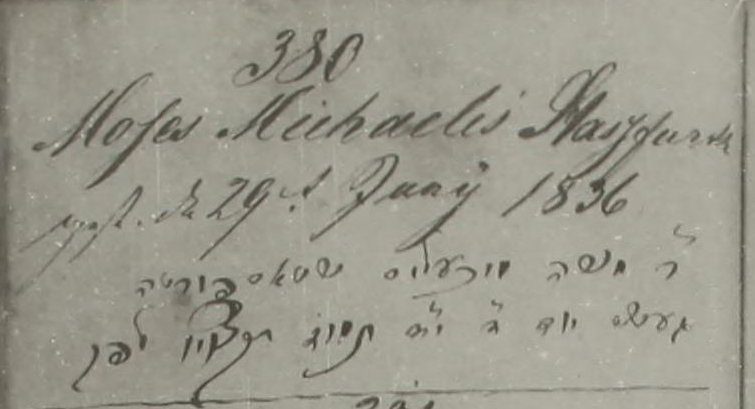 380
Moses Michaelis Stassfurth
gest. d. 29t Juny 1836
ר' משה מיכעליס שטאספורטה
געשט יום ד' י"ד תמוז תקצ"ו לפק